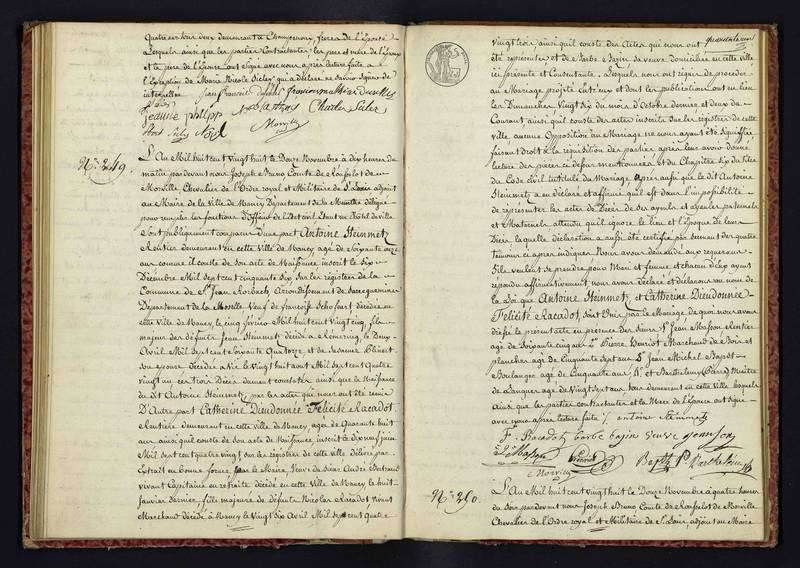 quatre vingt deux demeurant à Champenoux, frères de l'Epouse
Lesquels ainsi que les parties Contractantes, les père et mère de l'Epoux
et la mère de l'Epouse ont Signé avec nous après lecture faite à
l'Exception de Marie Nicole Sicler qui a déclaré ne Savoir Signer de
interpellée
jeanne philpp
Charles Sicler
Noël
Morvilly
N.° 249.
L'An Mil huit cent vingt huit le Douze Novembre à dix heures du
matin par devant nous Joseph Bruno Comte de Roufselot de
Morville, Chevalier de l'Ordre royal et Militaire de S.t Louis adjoint
au Maire de la Ville de Nancy Département de la Meurthe délégué
pour remplir les fonctions d'Officier de l'Etat civil Etant en l'hôtel de ville
Sont publiquement comparus d'une part Antoine Steinmetz
Rentier demeurant en cette Ville de Nancy agé de Soixante onze
ans comme il conste de son acte de Naissance inscrit le Six
Décembre Mil Sept cent cinquante Six, Sur les régistres de la
Commune de S.t Jean Rorbach Arrondissement de Sarreguemines
Département de la Moselle Veuf de françoise Schoffart décédée en
cette Ville de Nancy, le cinq février Mil huit cent vingt cinq, fils
majeur des défunts Jean Steinmetz décédé à Rémering, le Douze
Avril Mil Sept cent Soixante Quatorze, et de
son épouse décédée à Vic le Vingt huit aout Mil Sept cent Quatre
vingt un ces trois Décès dument constatés ainsi que la Naissance
du dit Antoine Steinmetz par les actes qui nous ont été remis
D'Autre part Catherine Dieudonnée Felicité Racadot
Rentière demeurant en cette ville de Nancy, agée de Quarante huit
ans ainsi qu'il conste de son acte de Naissance, inscrit le dix neuf juin
Mil Sept cent quatre vingt sur les régistres de cette Ville délivré par
Extrait en bonne forme par le Maire, Veuve du Sieur Andre Bertrand
vivant Capitaine en retraite décédé en cette Ville de Nancy le huit
Janvier dernier, fille majeure de défunt Nicolas Racadot vivant
Marchand décédé à Nancy le Vingt dix Avril Mil Sept cent quatre
vingt trois, ainsi qu'il conste des Actes qui nous ont
été représentés et de Barbe Bajin Sa veuve domiciliée en cette ville
ici présente et Consentante. Lesquels nous ont requis de procéder
au Mariage projeté Entr'eux et dont les publications ont eu lieu
les Dimanches Vingt Six du mois d'Octobre dernier, et deux du
Courant ainsi qu'il conste des actes inscrits sur les régistres de cette
ville aucune Opposition au Mariage ne nous ayant été Signifiée
faisant droit à la réquisition des parties après leur avoir donné
lecture des pièces ci dessus mentionnées et du Chapitre Six du Titre
du Code civil intitulé du Mariage, Après aussi que le dit Antoine
Steinmetz a eu déclaré et affirmé qu'il est dans l'impossibilité
de représenter les actes de Décès de ses ayeuls et ayeules paternels
et Maternels attendu qu'il ignore le lieu et l'Epoque de leur
Décès laquelle déclaration a aussi été certifiée par Serment des quatre
Témoins ci après indiqués. Nous avons demandé aux requerans
S'ils veulent se prendre pour Mari et femme et chacun d'Eux ayant
répondu affirmativement, nous avons déclaré et déclarons au nom de
la Loi que Antoine Steinmetz et Catherine Dieudonnée
Felicité Racadot, Sont Unis par le Mariage de quoi nous avons
dressé le présent acte en présence des Sieurs 1.° Jean Masson Rentier
agé de Soixante cinq ans 2.° Pierre Henriot Marchand de Bois et
plancher agé de Cinquante Sept ans 3.° Jean Michel Bapst
Boulanger agé de Cinquante ans 4.° et Barthelemy (Pierre) Maître
de Langues agé de Vingt Sept ans tous demeurant en cette Ville lesquels
Ainsi que les parties contractantes et la Mère de l'Epouse ont Signé
avec nous après lecture faite /. antoine steinmetz
F. Racadot barbe bajin veuve
Masson
Henriot
Bapst
P. Barthelemy
Morvilly
N.° 250.
L'An Mil huit cent vingt huit le Douze Novembre à quatre heures
du Soir par devant nous Joseph Bruno Comte de Roufselot de Morville
Chevalier de l'Ordre royal et Militaire de S.t Louis, adjoint au Maire